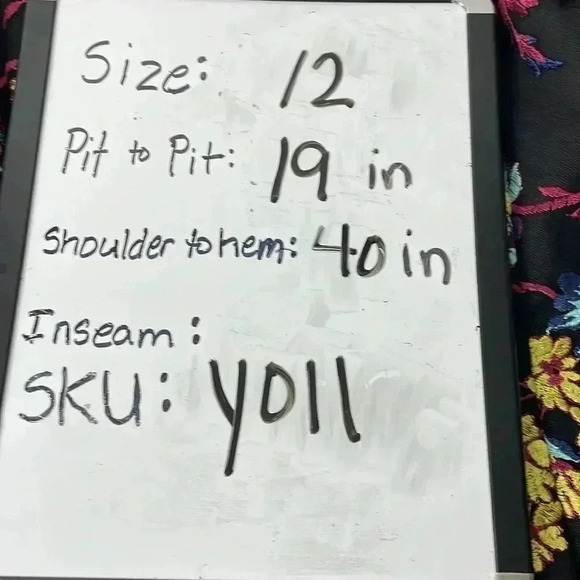 Size: 12
Pit to Pit: 19 in
Shoulder to hem: 40 in
Inseam:
SKU: Y011